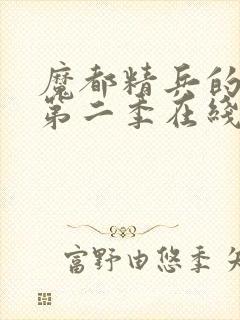 魔都精兵的
第二季在线
富野由悠季